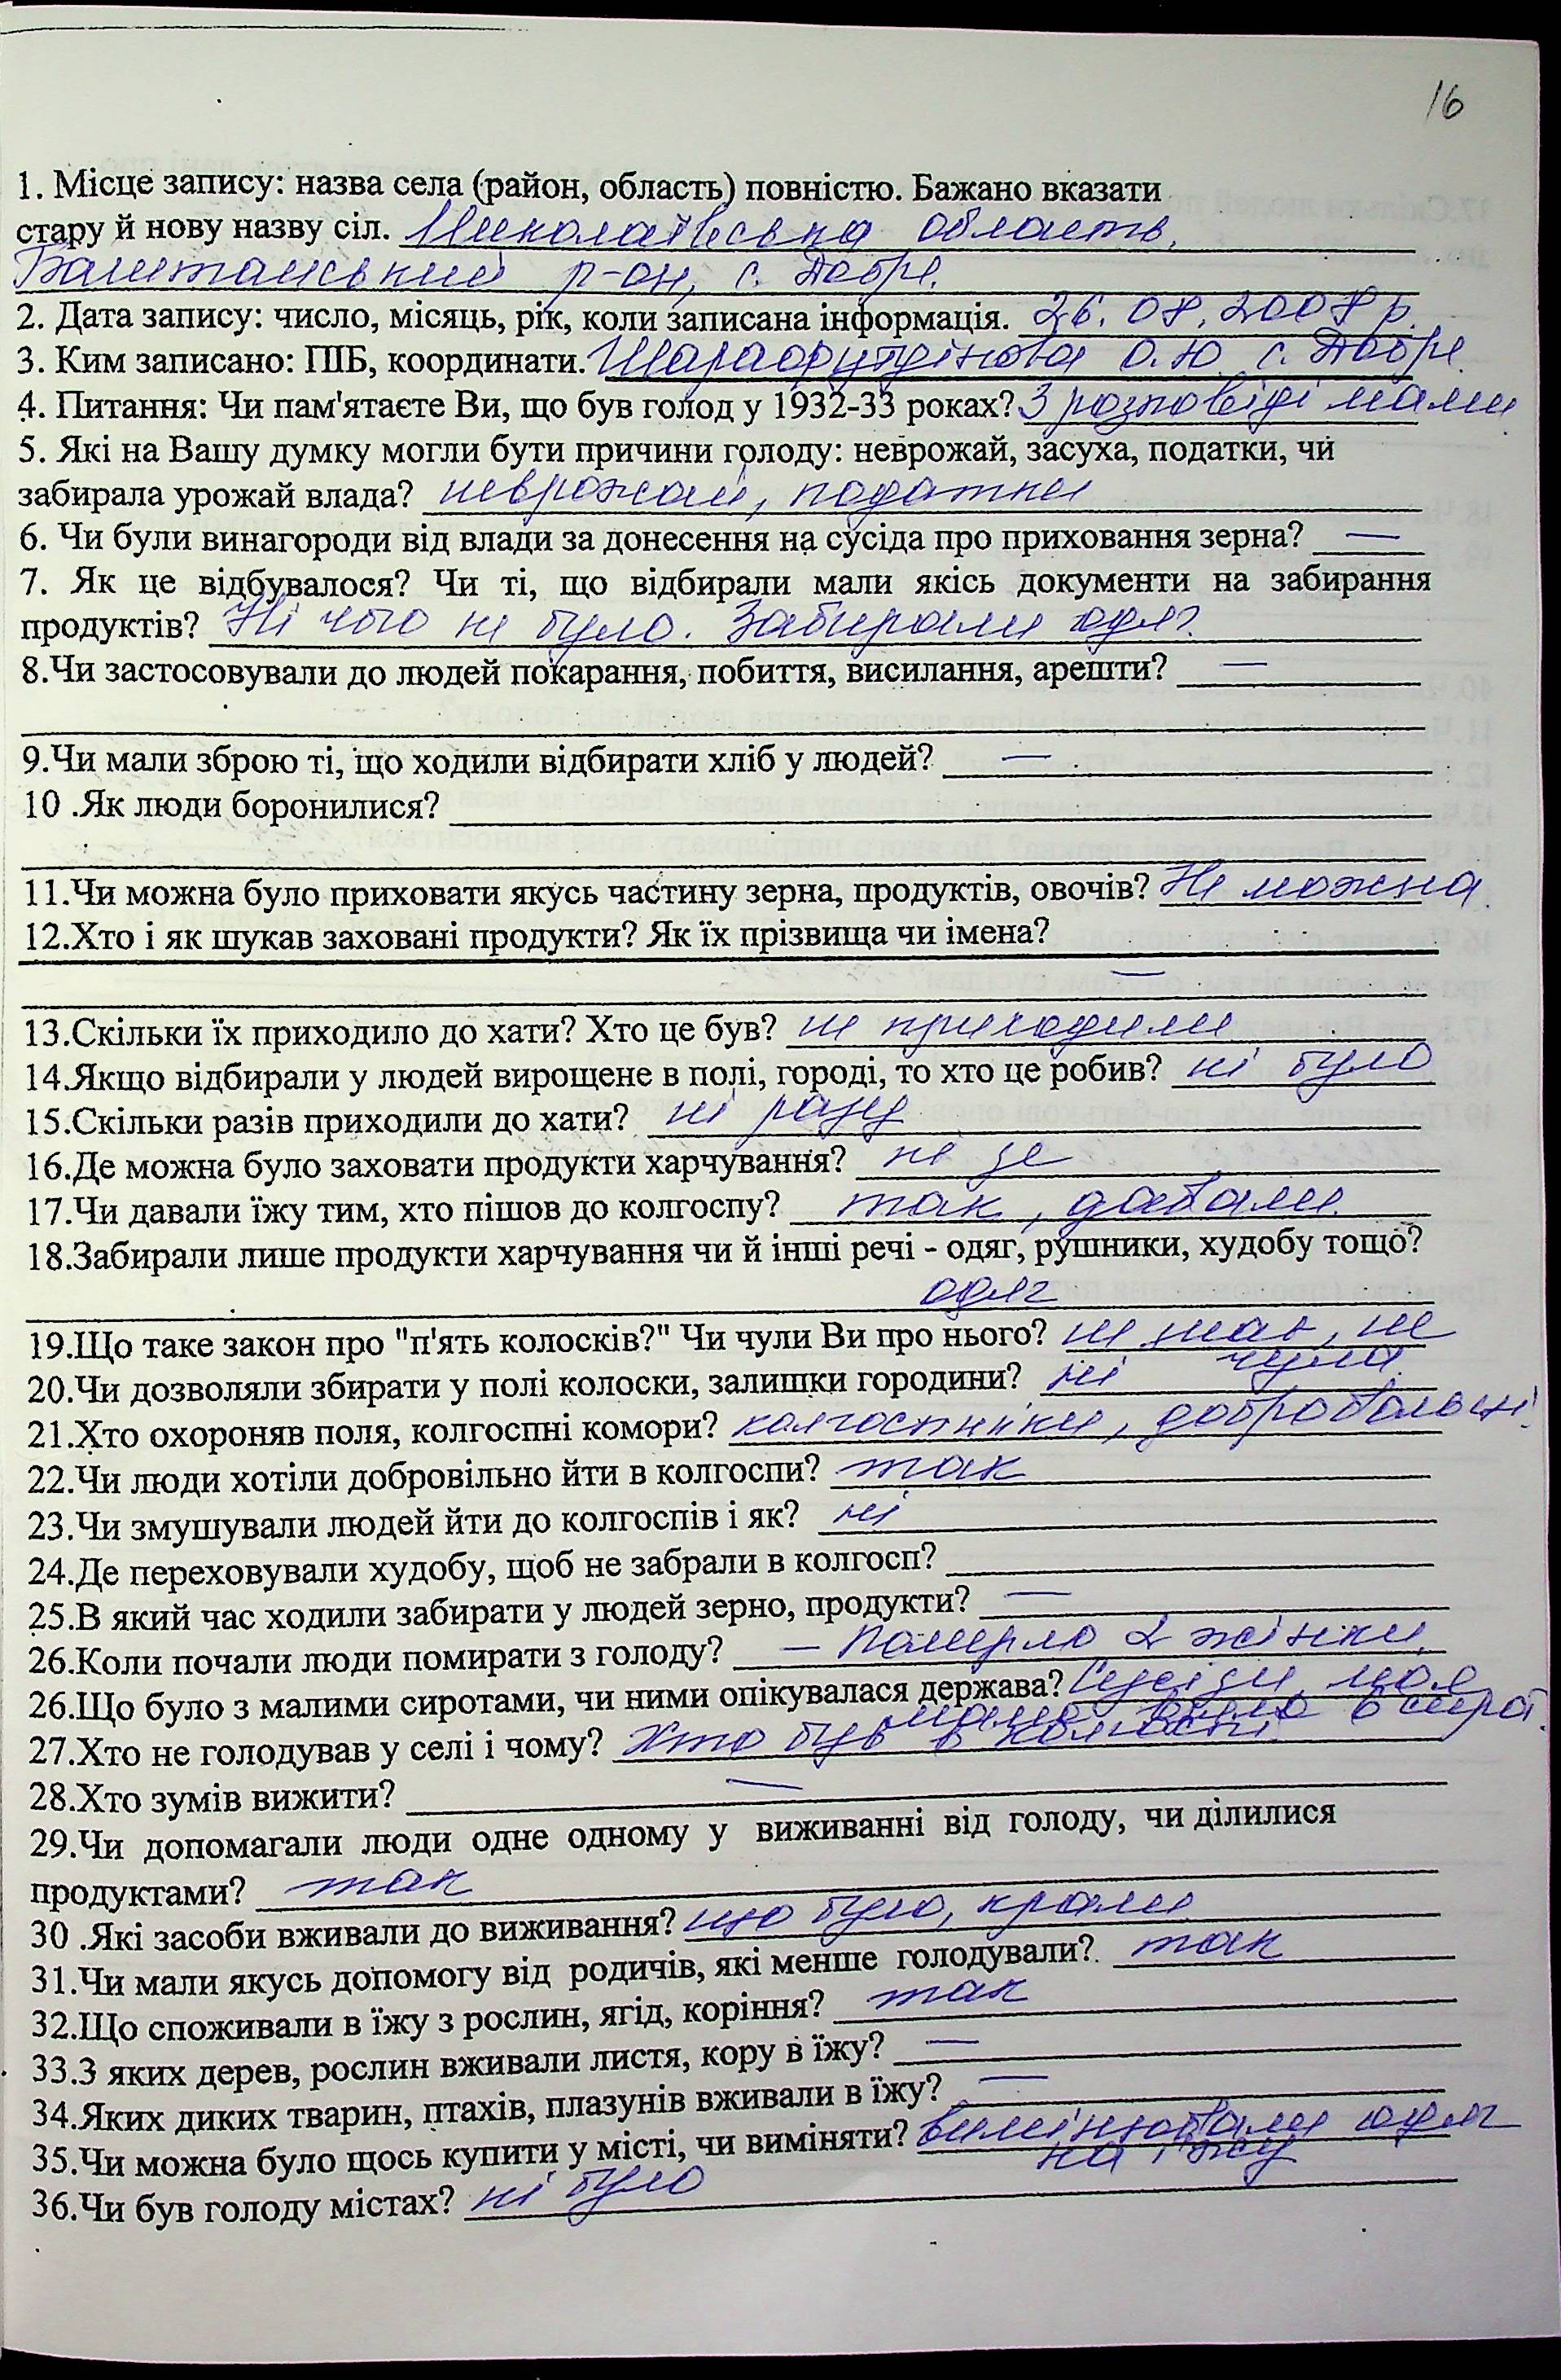 16
1. Місце запису: назва села (район, область) повністю. Бажано вказати
стару й нову назву сіл. Миколаївська область,
Баштанський р-он, с. Добре.
2. Дата запису: число, місяць, рік, коли записана інформація. 26. 08. 2008 р.
3. Ким записано: ПІБ, координати. Шарафутдінова О.Ю. с. Добре.
4. Питання: Чи пам'ятаєте Ви, що був голод у 1932-33 роках? З розповіді мами
5. Які на Вашу думку могли бути причини голоду: неврожай, засуха, податки, чи
забирала урожай влада? неврожай, податки
6. Чи були винагороди від влади за донесення на сусіда про приховання зерна? —
7. Як це відбувалося? Чи ті, що відбирали мали якісь документи на забирання
продуктів? Ні чого не було. Забирали одяг.
8.Чи застосовували до людей покарання, побиття, висилання, арешти? —
9.Чи мали зброю ті, що ходили відбирати хліб у людей? —
10 .Як люди боронилися?
11.Чи можна було приховати якусь частину зерна, продуктів, овочів? Не можна.
12.Хто і як шукав заховані продукти? Як їх прізвища чи імена?
—
13.Скільки їх приходило до хати? Хто це був? не приходили
14.Якщо відбирали у людей вирощене в полі, городі, то хто це робив? ні було
15.Скільки разів приходили до хати? ні разу
16.Де можна було заховати продукти харчування? ні де
17.Чи давали їжу тим, хто пішов до колгоспу? так, давали.
18.Забирали лише продукти харчування чи й інші речі - одяг, рушники, худобу тощо?
одяг
19.Що таке закон про "п'ять колосків?" Чи чули Ви про нього? не знаю, не
чула.
20.Чи дозволяли збирати у полі колоски, залишки городини? ні
21.Хто охороняв поля, колгоспні комори? колгоспники, добровольці
22.Чи люди хотіли добровільно йти в колгоспи? так
23.Чи змушували людей йти до колгоспів і як? ні
24.Де переховували худобу, щоб не забрали в колгосп?
25.В який час ходили забирати у людей зерно, продукти? —
26.Коли почали люди помирати з голоду? — Померло 2 жінки.
26.Що було з малими сиротами, чи ними опікувалася держава? Сусіди, моя
мама була 6 сирот.
27.Хто не голодував у селі і чому? Хто був в колгоспі.
28.Хто зумів вижити? —
29.Чи допомагали люди одне одному у виживанні від голоду, чи ділилися
продуктами? так
30 .Які засоби вживали до виживання? що було, крали
31.Чи мали якусь допомогу від родичів, які менше голодували? так
32.Що споживали в їжу з рослин, ягід, коріння? так
33.З яких дерев, рослин вживали листя, кору в їжу? —
34.Яких диких тварин, птахів, плазунів вживали в їжу? —
35.Чи можна було щось купити у місті, чи виміняти? вимінювали одяг
на їжу
36.Чи був голоду містах? ні було